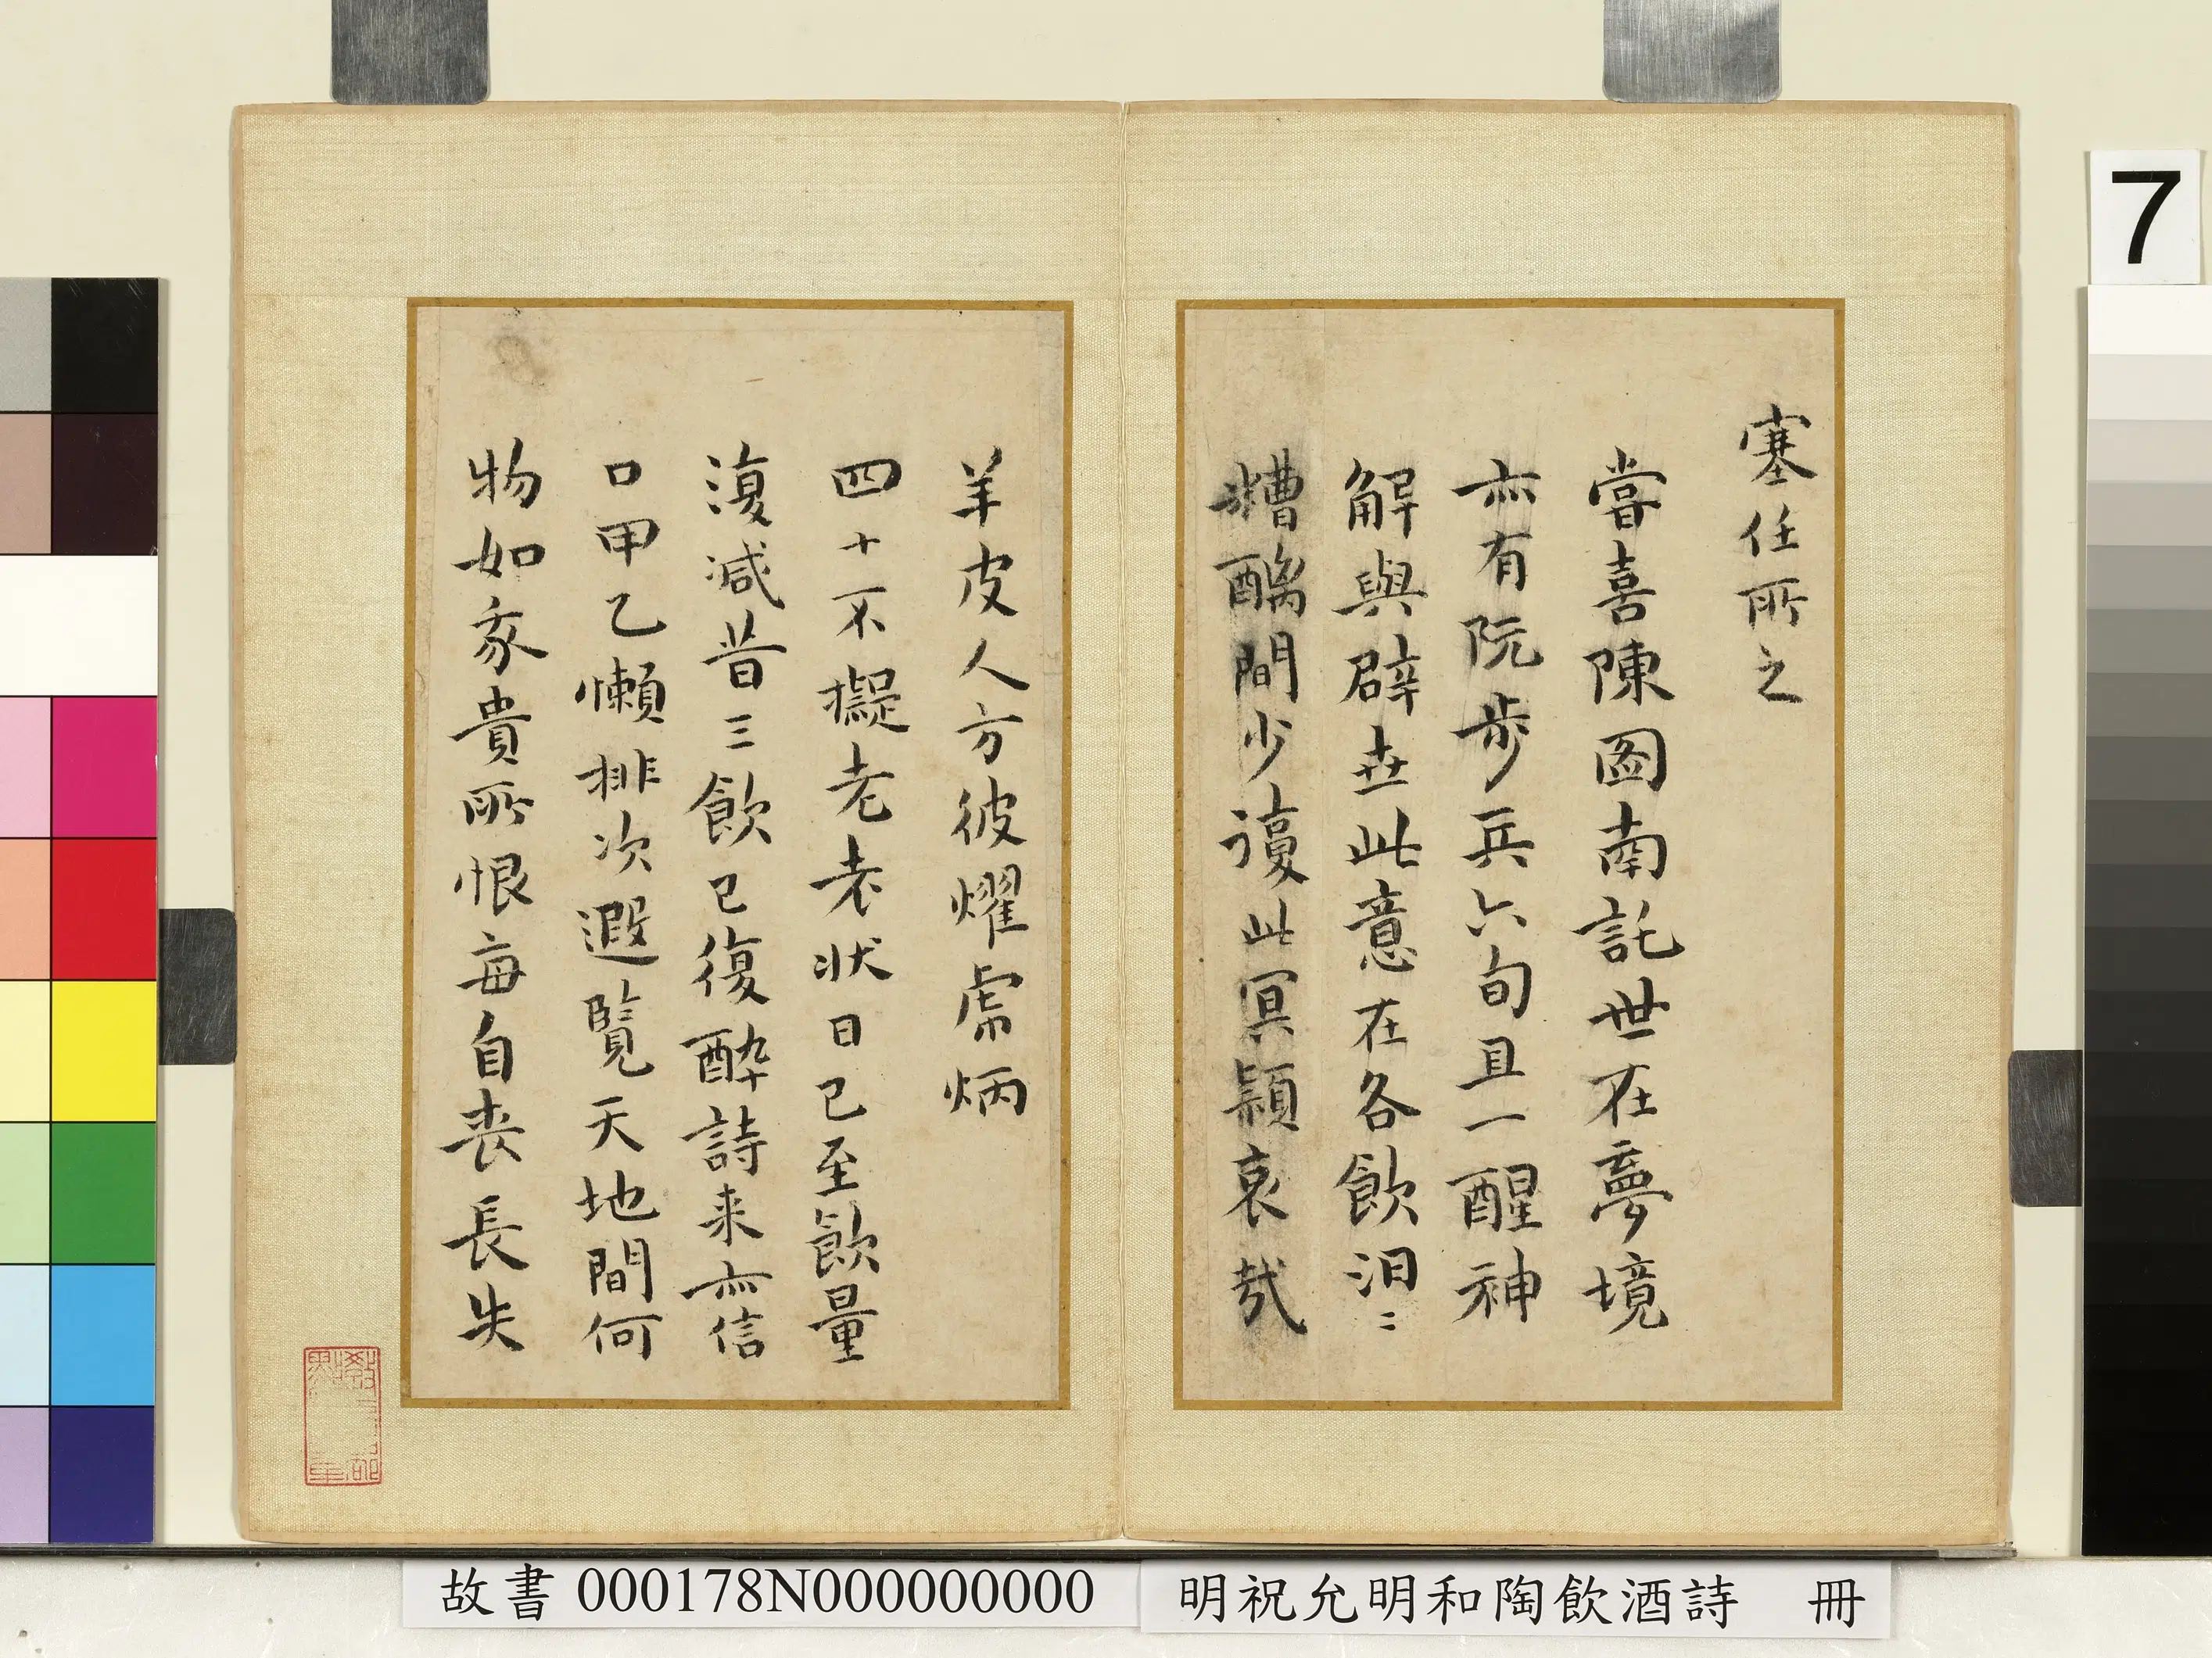 塞任所之
嘗喜陳圖南託世在夢境
亦有阮步兵六旬且一醒神
解與辟世此意在各飲汨〻
糟醨間少護此冥顓哀哉
羊皮人方彼燿虎炳
四十不擬老老狀日已至飲量
復減昔三飲已復醉詩来亦信
口甲乙懶排次遐覽天地間何
物如我貴所恨每自喪長失
7
故書 000178N000000000
明祝允明和陶飲酒詩 冊